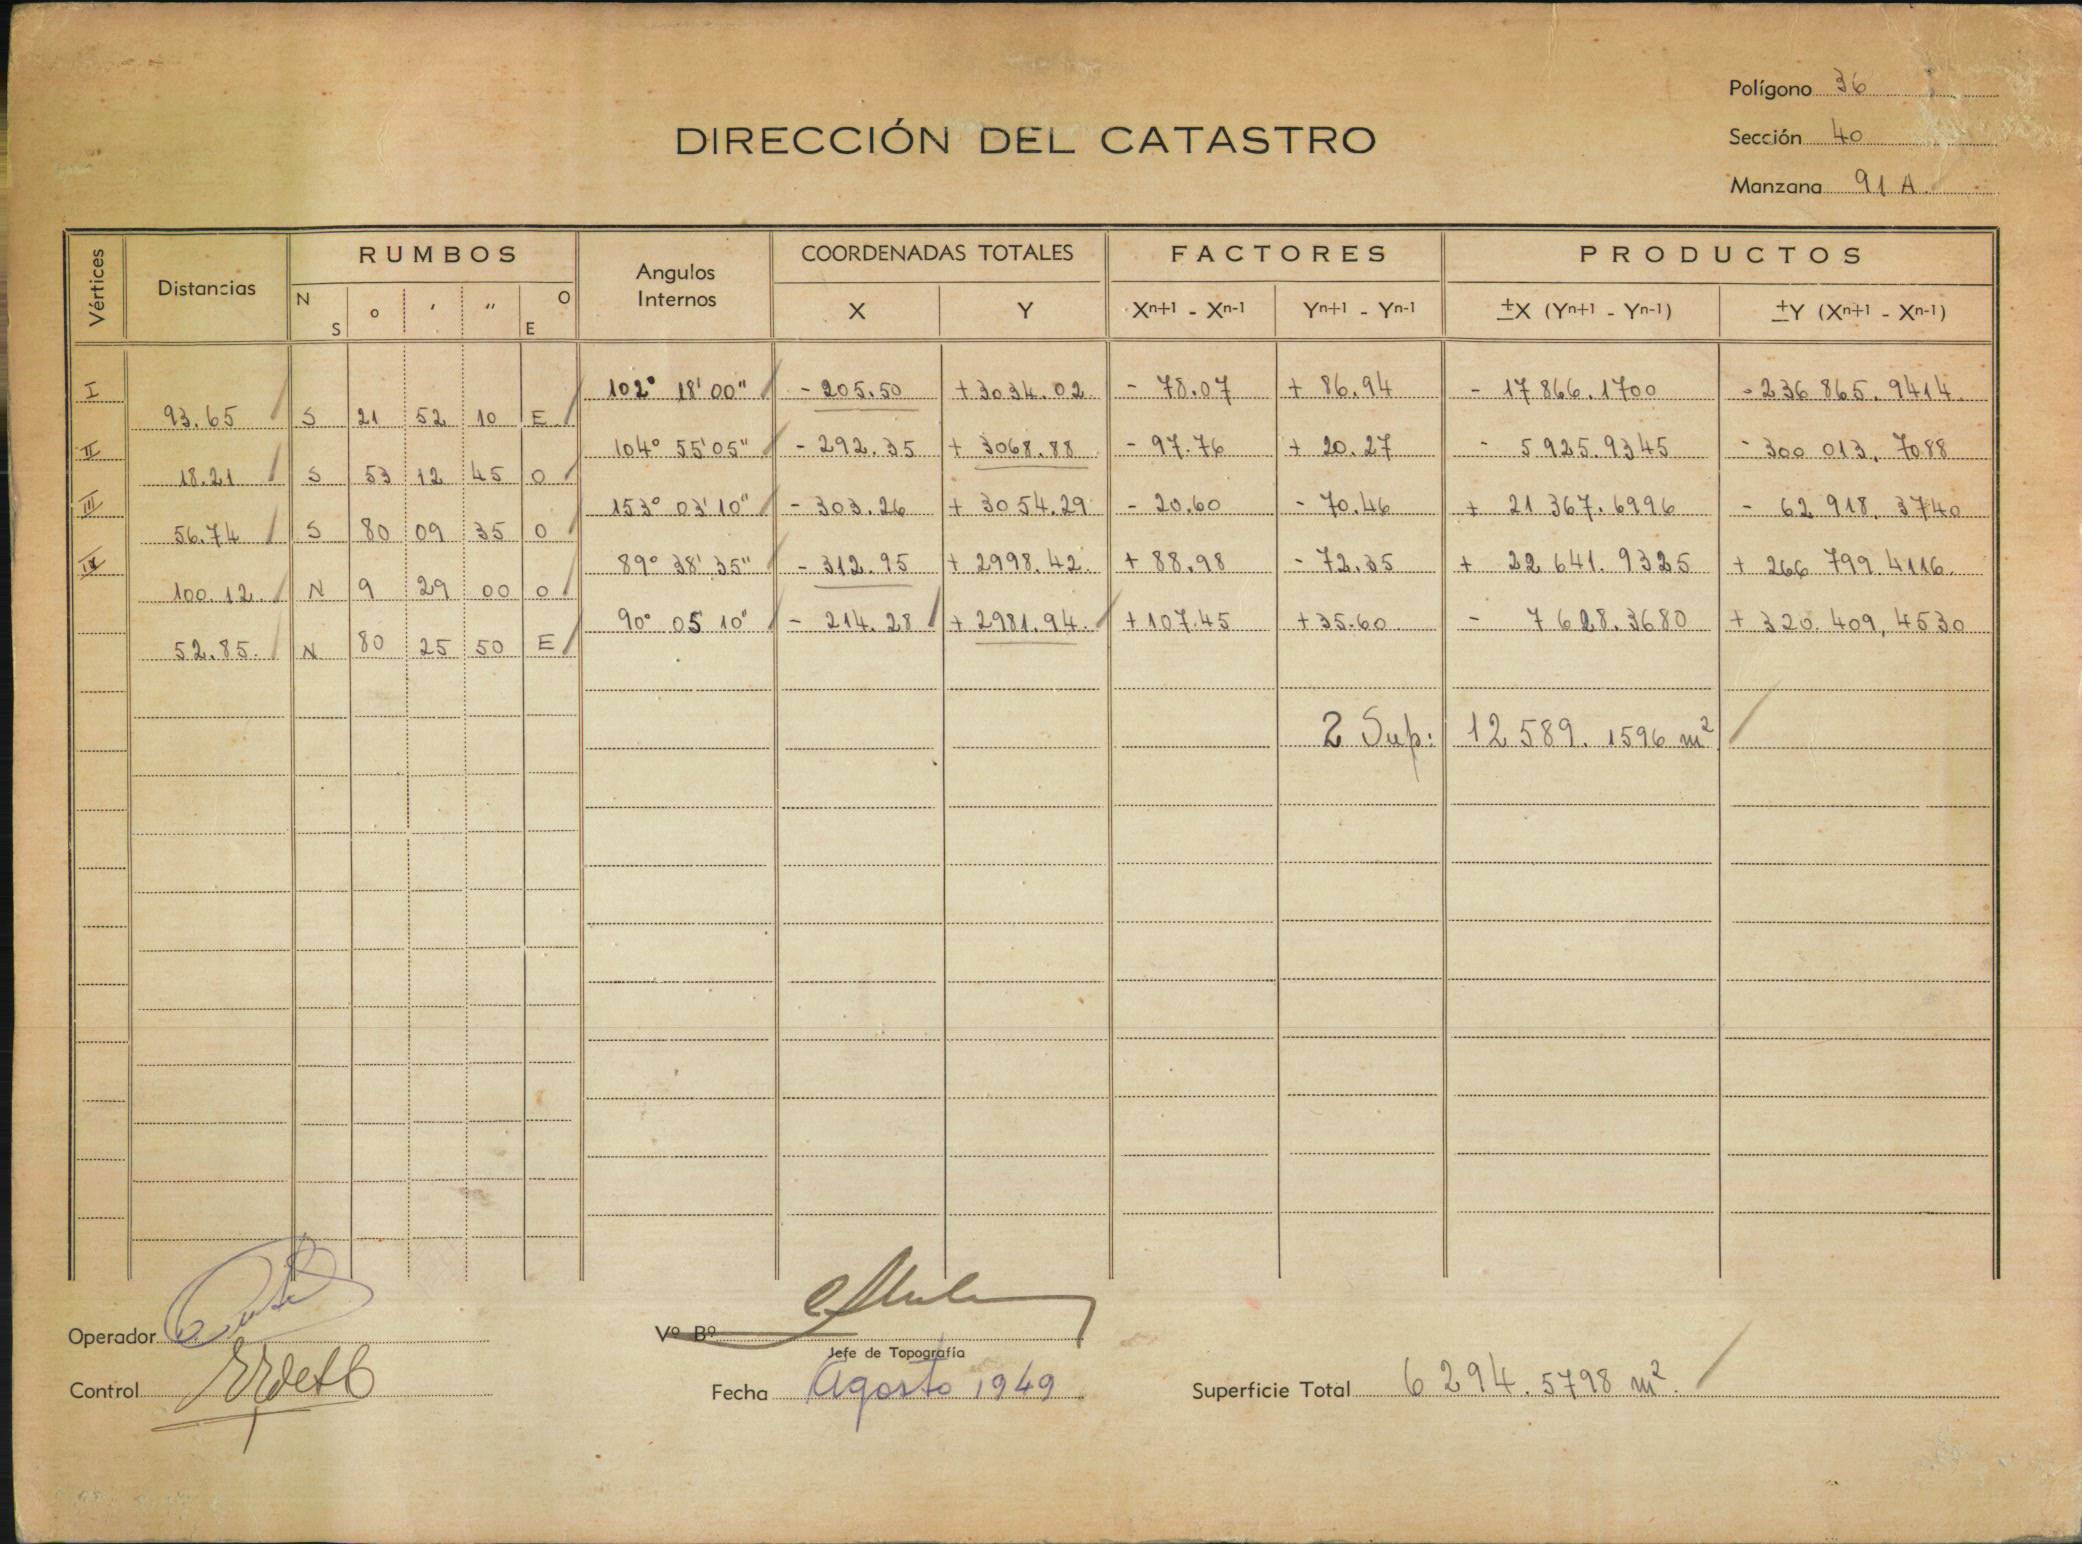 Polígono 36
DIRECCIÓN DEL CATASTRO
Sección 40
Manzana 91 A
Vértices Distancias RUMBOS Angulos Internos COORDENADAS TOTALES FACTORES PRODUCTOS
N S ° ' " O E X Y Xn+1 - Xn-1 Yn+1 - Yn-1 ±X (Yn+1 - Yn-1) ±Y (Xn+1 - Xn-1)
I 102° 18' 00" - 205.50 +3034.02 - 78.07 + 86.94 - 17866.1700 - 236 865.9414
93.65 S 21 52 10 E
II 104° 55' 05" - 292.35 + 3068.88 - 97.76 + 20.27 - 5925.9345 - 300 013.7088
18.21 S 53 12 45 O
III 153° 03' 10" - 303.26 + 3054.29 - 20.60 - 70.46 + 21367.6996 - 62 918.3740
56.74 S 80 09 35 O
IV 89° 38' 35" - 312.95 + 2998.42 + 88.98 - 72.35 + 22641.9325 + 266 799.4116
100.12 N 9 29 00 O
90° 05 10" - 214.28 + 2981.94 +107.45 +35.60 - 7628.3680 + 320.409,4530
52.85 N 80 25 50 E
2 Sup: 12589.1596 m²
Operador
Vº Bº
Jefe de Topografía
Control
Fecha Agosto 1949
Superficie Total 6294.5798 m².